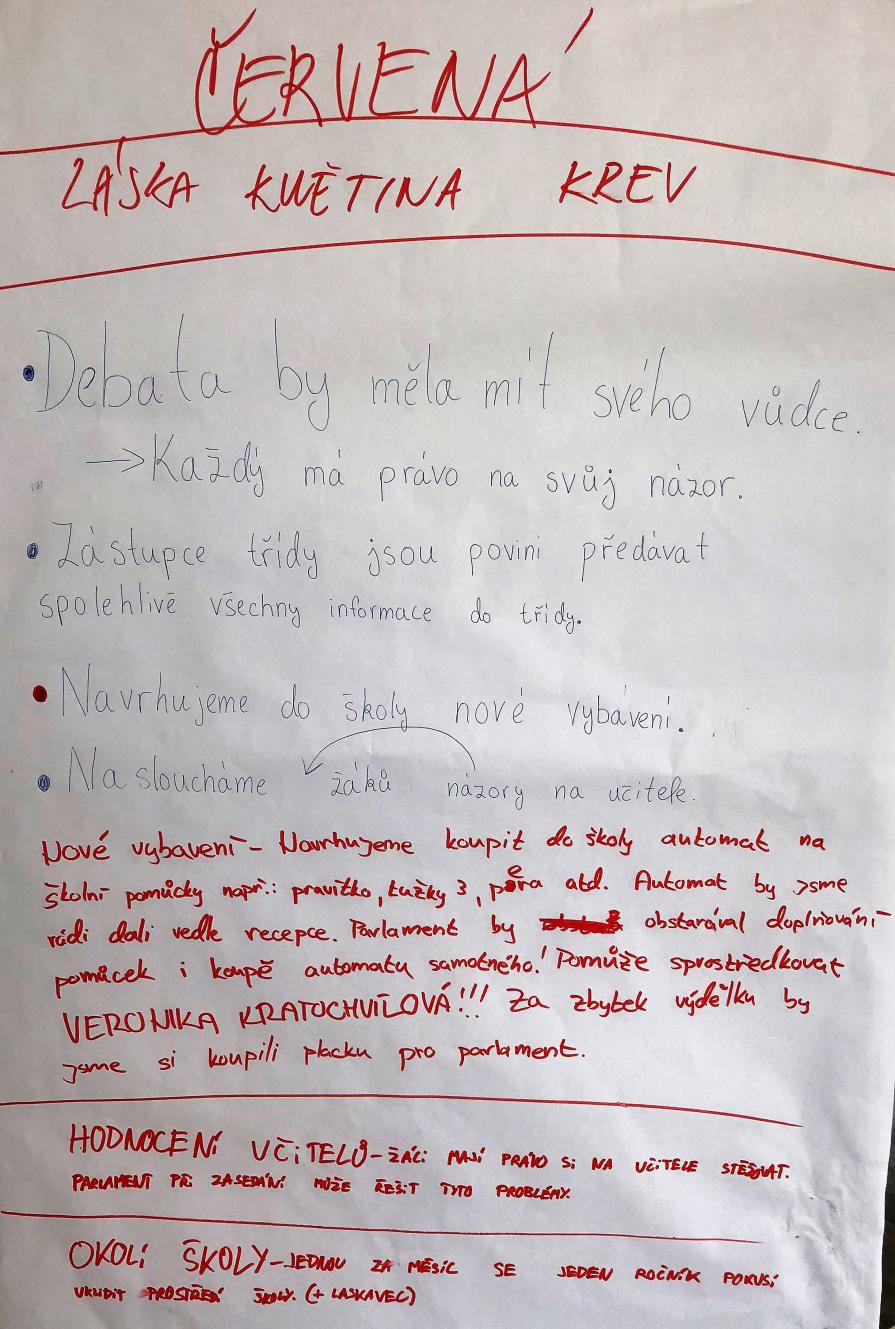 ČERVENÁ
LÁSKA KVĚTINA KREV
• Debata by měla mít svého vůdce.
→ Každý má právo na svůj názor.
• Zástupce třídy jsou povini předávat
spolehlivě všechny informace do třídy.
• Navrhujeme do školy nové vybávení.
• Nasloucháme žáků názory na učitele.
Nové vybavení – Navrhujeme koupit do školy automat na
školní pomůcky např.: pravítko, tužky 3, pera atd. Automat by jsme
rádi dali vedle recepce. Parlament by obstarával doplňování
pomůcek i koupě automatu samotného! Pomůže sprostředkovat
VERONIKA KRATOCHVÍLOVÁ!!! Za zbytek výdělku by
jsme si koupili placku pro parlament.
HODNOCENÍ UČITELŮ – ŽÁCI MAJÍ PRÁVO SI NA UČITELE STĚŽOVAT.
PARLAMENT PŘI ZASEDÁNÍ MŮŽE ŘEŠIT TYTO PROBLÉMY.
OKOLÍ ŠKOLY – JEDNOU ZA MĚSÍC SE JEDEN ROČNÍK POKUSÍ
UKLIDIT PROSTŘEDÍ ŠKOLY. (+ LASKAVEC)